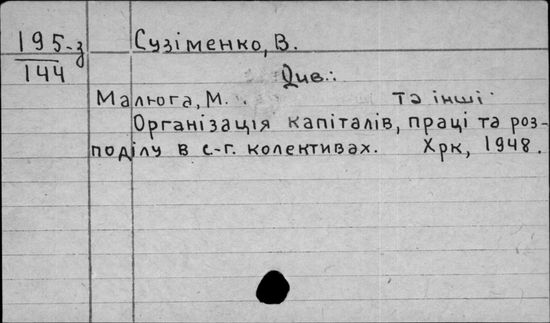 195-з
144
Сузіменко, В.
Див.:
Малюга, М. . та інші
Організація капіталів, праці та роз-
поділу в с-г. колективах. Хрк, 1948.